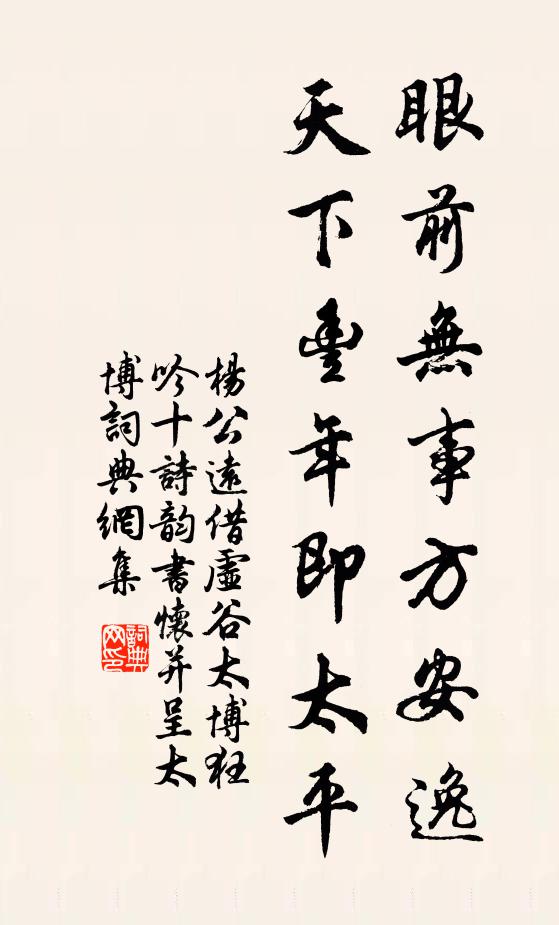 眼前無事方安逸
天下豐年即太平
楊公遠借虛谷太博狂
吟十詩韵書懷并呈太
博詞典網集
詞典
网印